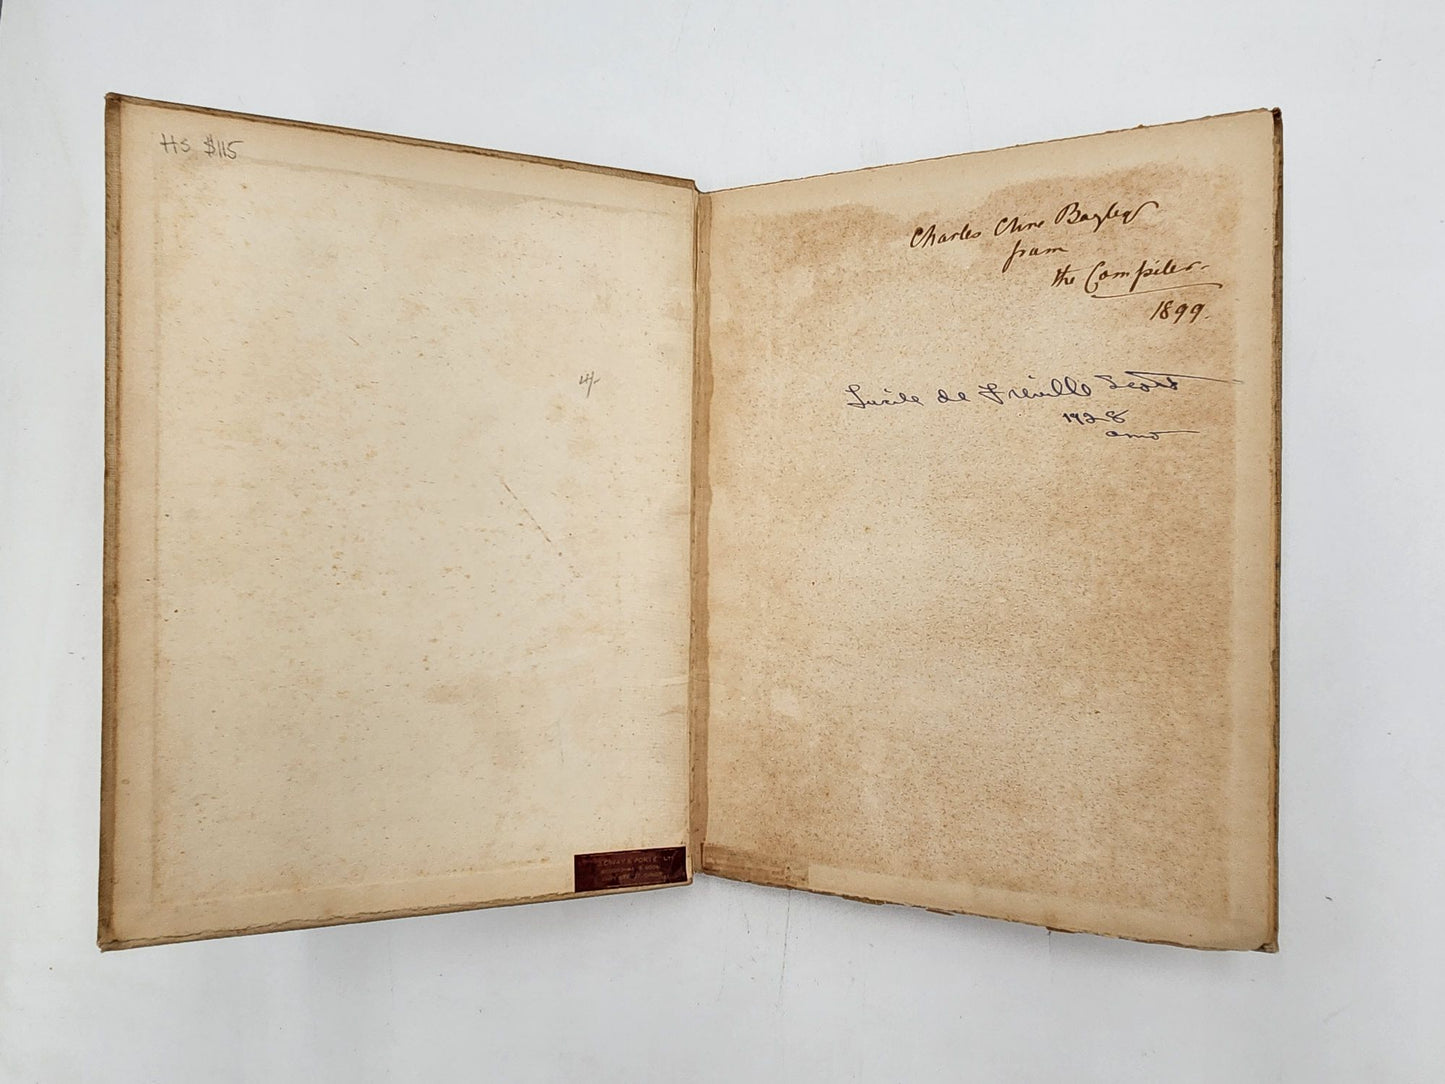 HS $115
4/-
Charles Clive Bayley
from
the Compiler.
1899.
Lucile de Freville Scott
1928